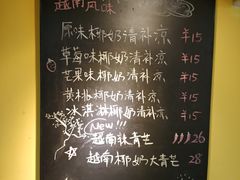 越南风味
原味椰奶清补凉 ¥15
草莓味椰奶清补凉 ¥15
芒果味椰奶清补凉 ¥15
黄桃椰奶清补凉 ¥15
冰淇淋椰奶清补凉 ¥15
New!!!
越南 青芒 26
越南椰奶大青芒 28